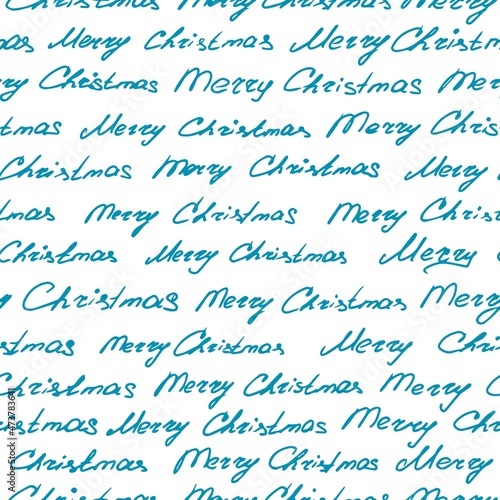 Christmas Merry Christmas Merry
mas Merry Christmas Merry Christmas
ry Christmas Merry Christmas Mer
stmas Merry Christmas Merry Chris
Christmas Merry Christmas Merry
tmas Merry Christmas Merry Christ
Christmas Merry Christmas Merry C
y Christmas Merry Christmas Merry
istmas Merry Christmas Merry Ch
Christmas Merry Christmas Merry C
istmas Merry Christmas Merry Chr
Christmas Merry Christmas Merry
Christmas Merry Christmas
Adobe Stock | #473783641